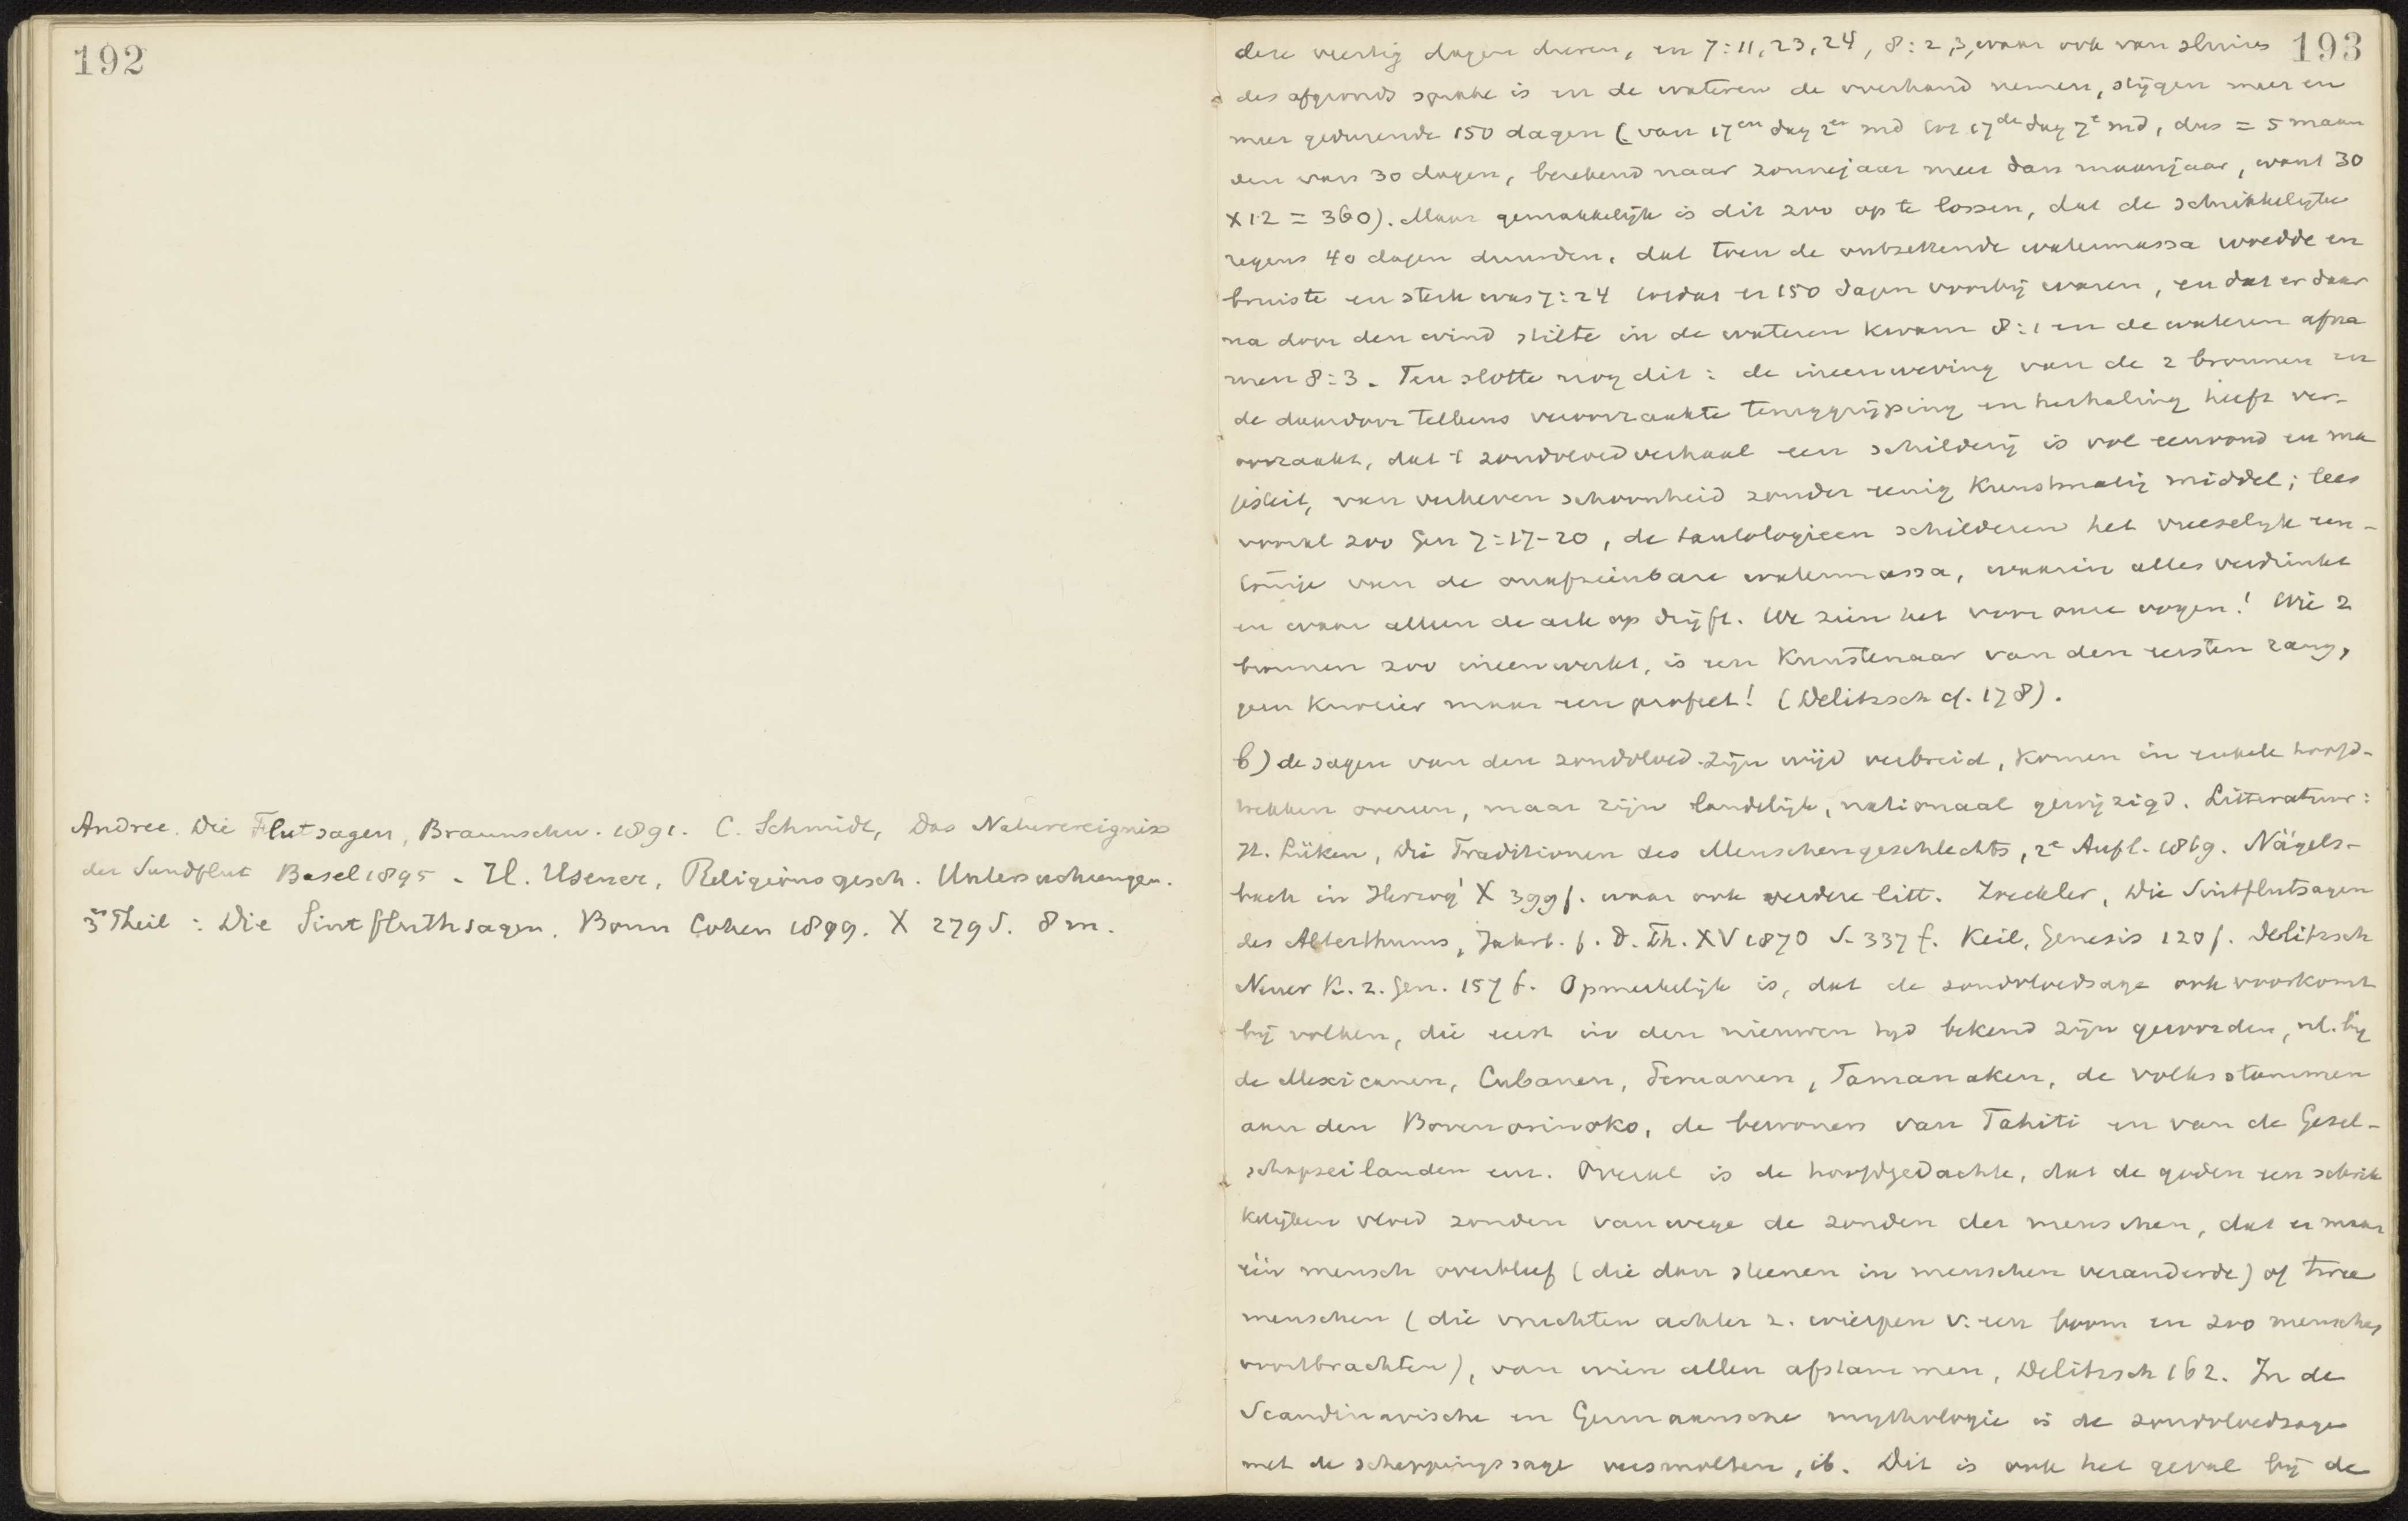 192
Andree. Die Flutsagen, Braunschw. 1891. C. Schmidt, Das Naturereignis
der Sundflut Basel 1895 - H. Usener, Religionsgesch. Untersuchungen.
3er Theil: Die Sintfluthsagen. Bonn Cohen 1899. X 279 S. 8 m.
193
dere veertig dagen duren, en 7:11, 23, 24, 8:2, 3, waar ook van sluizen
des afgronds sprake is en de wateren de overhand nemen, stijgen meer en
meer gedurende 150 dagen (van 17en dag 2er md tot 17de dag 7e md, dus = 5 maan
den van 30 dagen, berekend naar zonnejaar meer dan maanjaar, want 30
x 12 = 360). Maar gemakkelijk is dit zoo op te lossen, dat de schrikkelijke
regens 40 dagen duurden, dat toen de ontzettende watermassa woedde en
bruiste en sterk was 7:24 totdat er 150 dagen voorbij waren, en dat er daar
na door den wind stilte in de wateren kwam 8:1 en de wateren afna
men 8:3. Ten slotte nog dit: de ineenweving van de 2 bronnen en
de daardoor telkens veroorzaakte teruggrijping en herhaling heeft ver-
oorzaakt, dat 't zondvloedverhaal een schilderij is vol eenvoud en ma
jesteit, van verheven schoonheid zonder eenig kunstmatig middel; lees
vooral zoo Gen 7:17-20, de tautologieen schilderen het vreeselijk een-
tonige van de onafzienbare watermassa, waarin alles verdrinkt
en waar alleen de ark op drijft. We zien het voor onze oogen! Wie 2
bronnen zoo ineenwerkt, is een Kunstenaar van den eersten rang,
geen knoeier maar een profeet! (Delitzsch cf. 178).
b) de sagen van den zondvloed zijn wijd verbreid, komen in enkele hoofd-
trekken overeen, maar zijn landelijk, nationaal gewijzigd. Litteratuur:
H. Lüken, Die Traditionen des Menschengeschlechts, 2e Aufl. 1869. Nägels-
bach in Herzog¹ X 399 f. waar ook verdere litt. Zoeckler, Die Sintflutsagen
des Alterthums, Jahrb. f. D. Th. XV 1870 S. 337 f. Keil, Genesis 120 f. Delitzsch
Neuer K. z. Gen. 157 f. Opmerkelijk is, dat de zondvloedsage ook voorkomt
bij volken, die eerst in den nieuwen tijd bekend zijn geworden, nl. bij
de Mexicanen, Cubanen, Peruanen, Tamanaken, de volksstammen
aan den Bovenorinoko, de bewoners van Tahiti en van de Gesel-
schapseilanden enz. Overal is de hoofdgedachte, dat de goden een schrik
kelijken vloed zonden vanwege de zonden der menschen, dat er maar
één mensch overbleef (die dan steenen in menschen veranderde) of twee
menschen (die vruchten achter z. wierpen v. een boom en zoo menschen
voortbrachten), van wien allen afstammen, Delitzsch 162. In de
Scandinavische en Germaansche mythologie is de zondvloedsage
met de scheppingssage versmolten, ib. Dit is ook het geval bij de